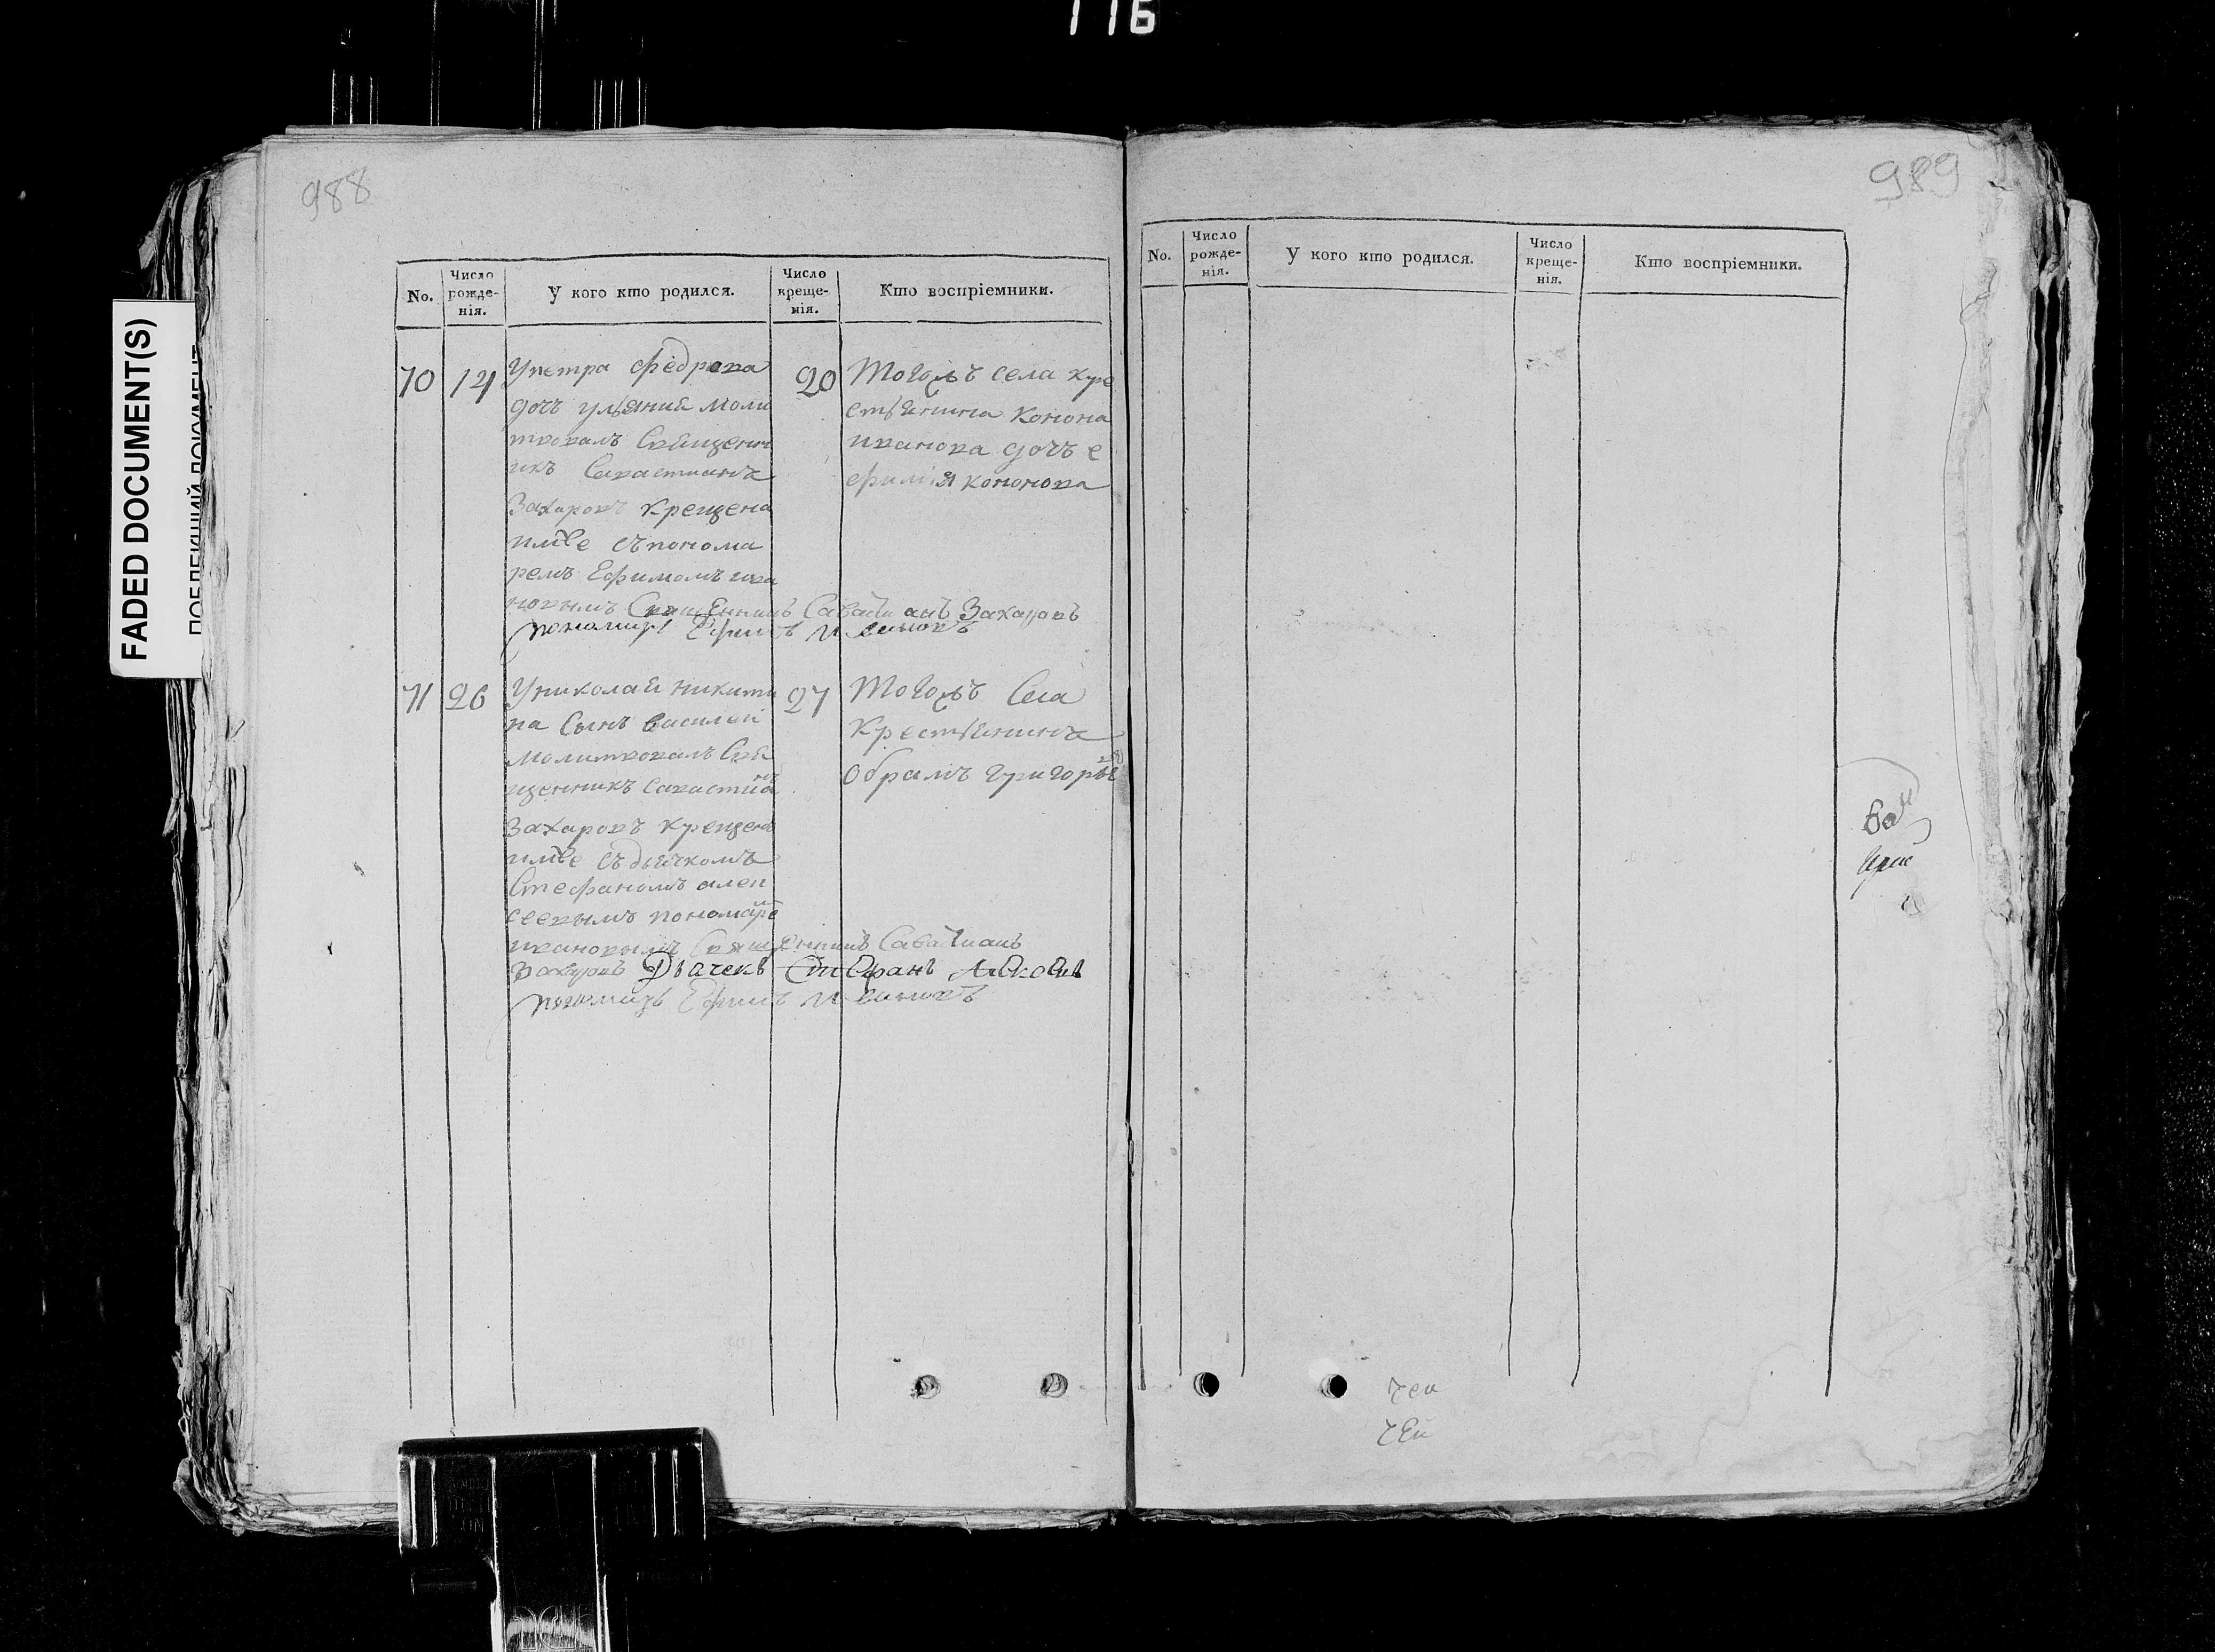 116
FADED DOCUMENT(S)
988
No.
Число рожде-нія.
У кого кто родился.
Число креще-нія.
Кто воспріемники.
70
14
У петра федрова
дочь ульяния моли
твовалъ Священн
икъ Савастианъ
Захаровъ крещена
имже съ понома
ремъ Ефимомъ ива
новымъ Священникъ Савастианъ Захаровъ
пономарь Ефимъ Ивановъ
20
Тогожъ села кре
стьянина конона
иванова дочь е
фимия кононова
71
26
У николая никити
на Сынъ василий
молитвовалъ Свя
щенникъ савастианъ
Захаровъ крещенъ
имже съ дьячкомъ
Стефаномъ алек
сеевымъ пономаремъ
ивановымъ Священникъ Савастианъ
Захаровъ Дьячекъ Стефанъ
пономарь Ефимъ Ивановъ
27
Тогожъ Села
Крестьянинъ
обрамъ григорьевъ
989
No.
Число рожде-нія.
У кого кто родился.
Число креще-нія.
Кто воспріемники.